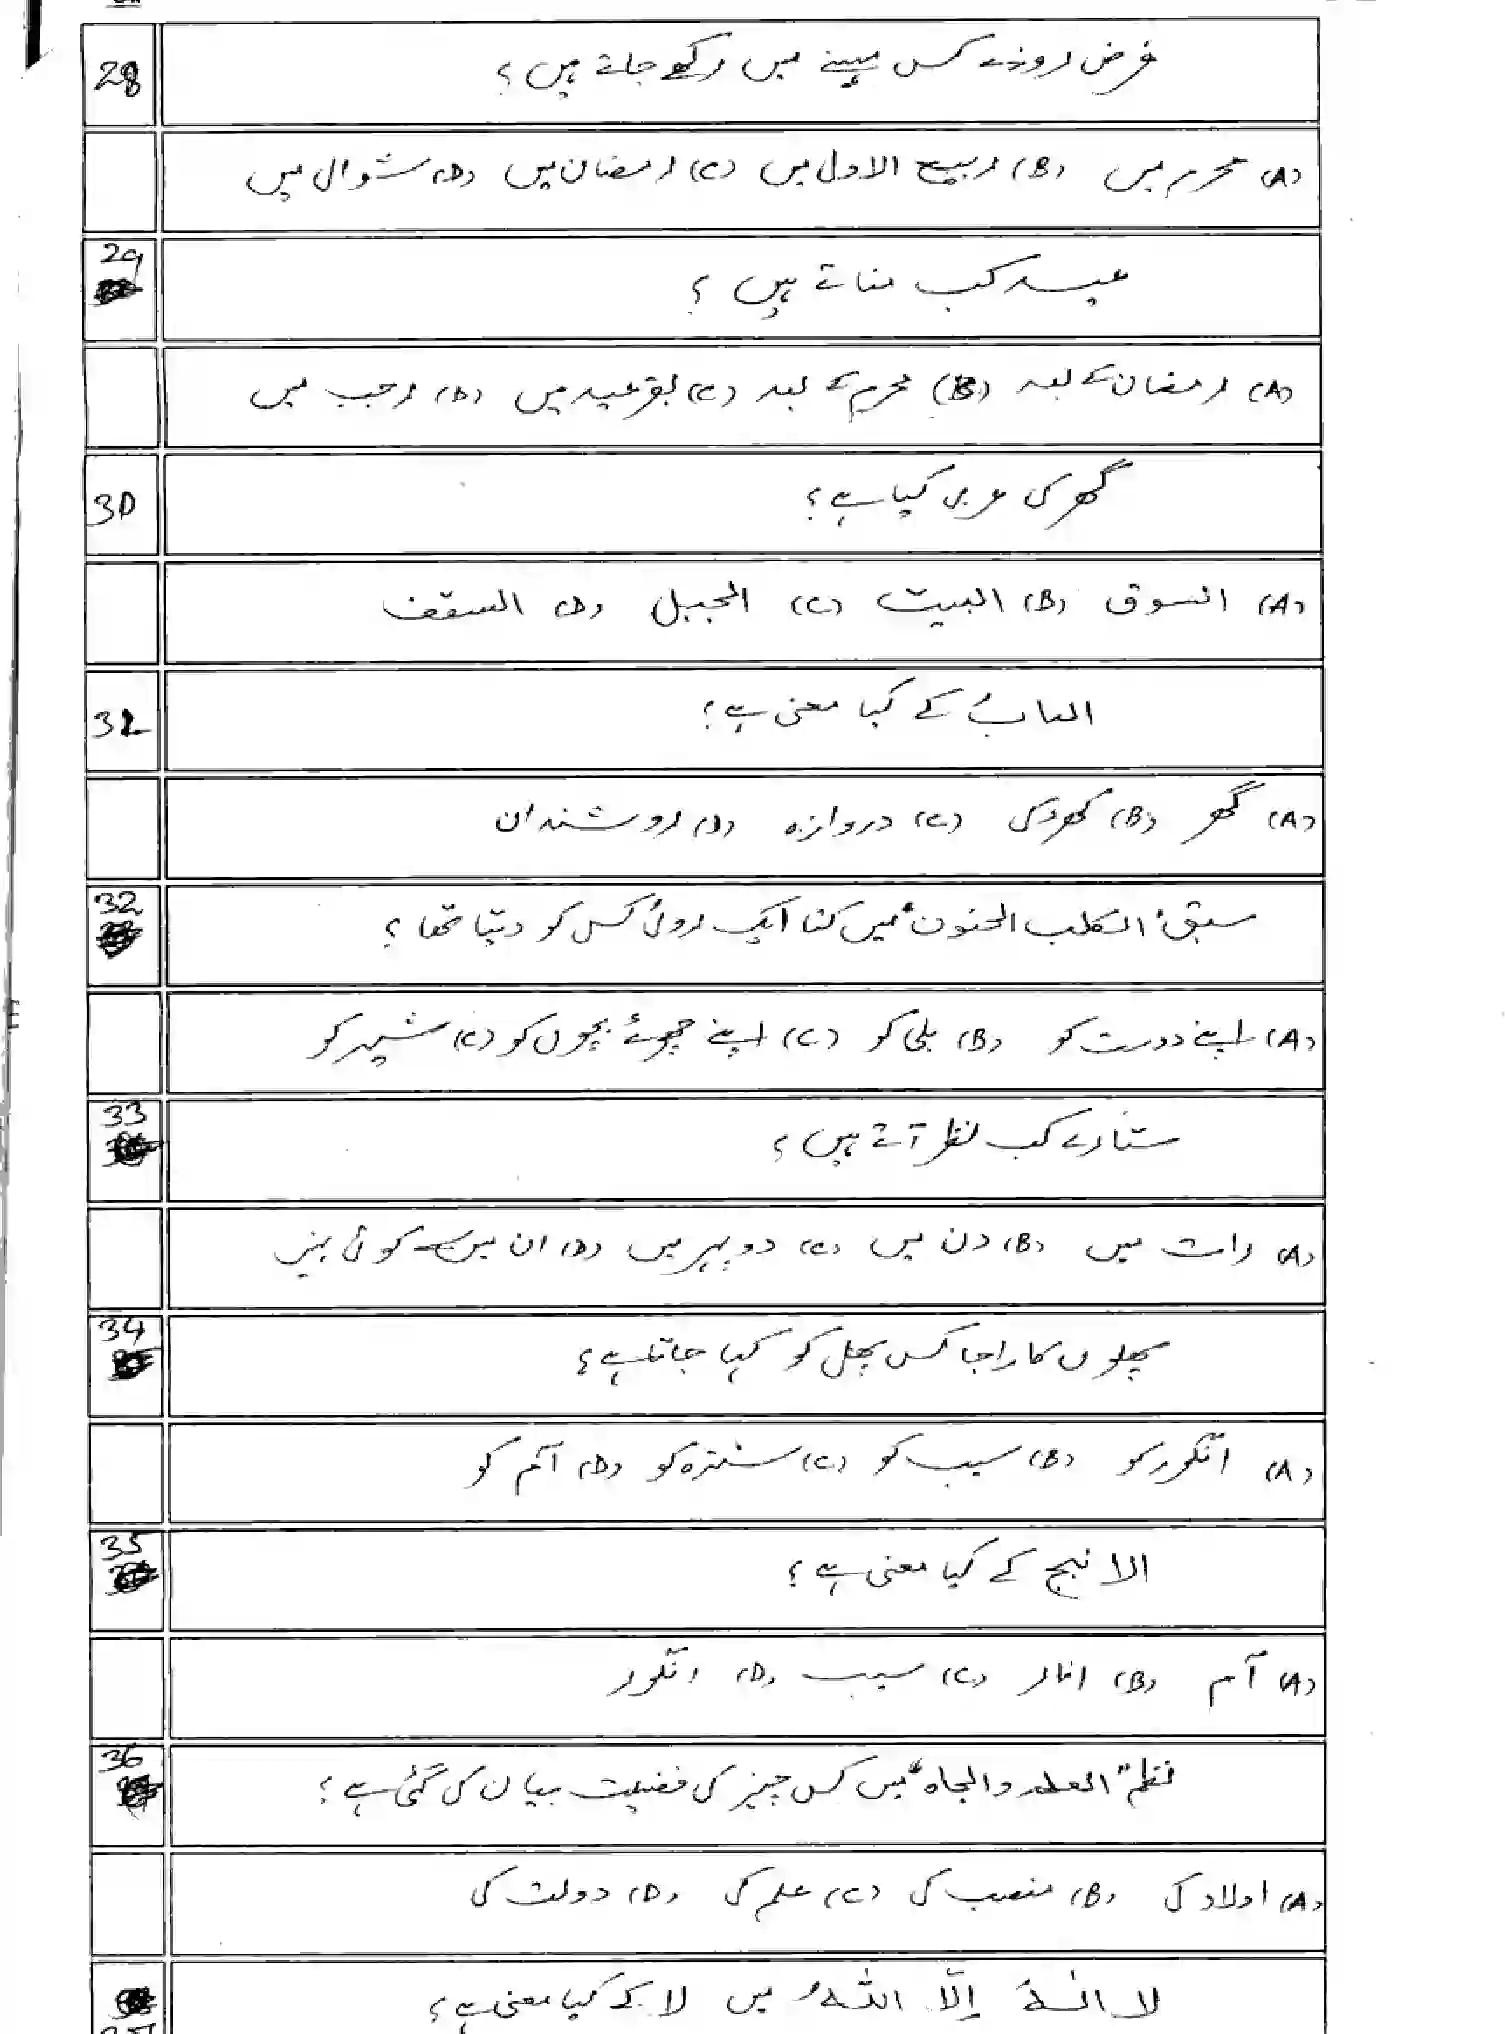 28 فرض روزے کس مہینے میں رکھے جاتے ہیں ؟
(A) محرم میں (B) ربیع الاول میں (C) رمضان میں (D) شوال میں
29 عید کب مناتے ہیں ؟
(A) رمضان کے بعد (B) محرم کے بعد (C) بقرعید میں (D) رجب میں
30 گھر کی عربی کیا ہے ؟
(A) السوق (B) البیت (C) الجبل (D) السقف
31 البابُ کے کیا معنی ہے ؟
(A) گھر (B) کھڑکی (C) دروازہ (D) روشندان
32 سبق "الکلب الحنون" میں کتا ایک روٹی کس کو دیتا تھا ؟
(A) اپنے دوست کو (B) بلی کو (C) اپنے چھوٹے بچوں کو (C) شیر کو
33 ستارے کب نظر آتے ہیں ؟
(A) رات میں (B) دن میں (C) دوپہر میں (D) ان میں سے کوئی نہیں
34 پھلوں کا راجا کس پھل کو کہا جاتا ہے ؟
(A) انگور کو (B) سیب کو (C) سنترہ کو (D) آم کو
35 الانبج کے کیا معنی ہے ؟
(A) آم (B) انار (C) سیب (D) انگور
36 نظم "العلم والجاہ" میں کس چیز کی فضیلت بیان کی گئی ہے ؟
(A) اولاد کی (B) منصب کی (C) علم کی (D) دولت کی
لا الٰہَ اِلّا اللہُ میں لا کے کیا معنی ہے ؟